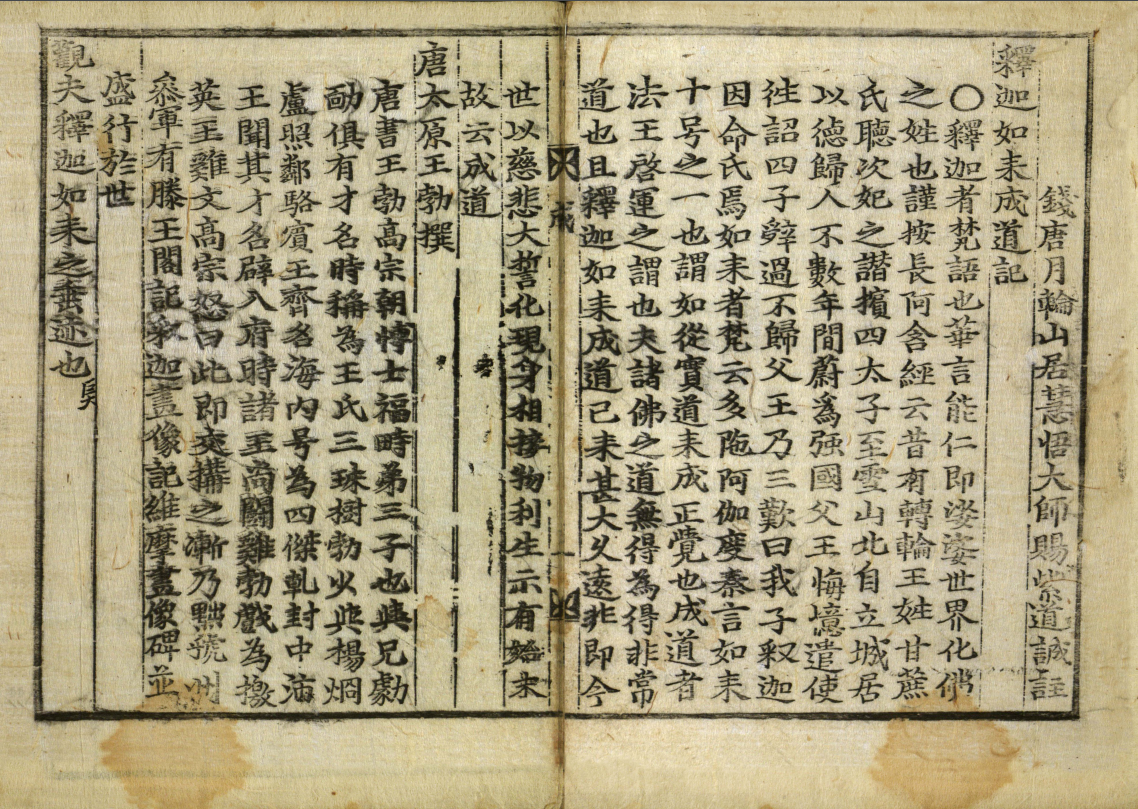 錢唐月輪山居慧悟大師賜紫道誠註
釋迦如来成道記
〇釋迦者梵語也華言能仁即娑婆世界化佛
之姓也謹按長阿含經云昔有轉輪王姓甘蔗
氏聽次妃之譖擯四太子至雪山北自立城居
以德歸人不數年間蔚爲强國父王悔憶遣使
徃詔四子辤過不歸父王乃三歎曰我子釈迦
因命氏焉如来者梵云多陁阿伽度秦言如来
十号之一也謂如從實道来成正覺也成道者
法王啓運之謂也夫諸佛之道無得為得非常
道也且釋迦如来成道已来甚大久遠非即今
成 一
世以慈悲大誓化現身相接物利生示有始末
故云成道
唐太原王勃撰
唐書王勃高宗朝博士福時弟三子也與兄勮
勔俱有才名時稱為王氏三珠樹勃少與楊烱
盧照鄰駱賔王齊名海內号為四傑軋封中沛
王聞其才名辟入府時諸王尚鬪雞勃戲為檄
英王雞文高宗怒曰此即交搆之漸乃黜虢州
叅軍有滕王閣記釈迦畫像記維摩畫像碑並
盛行於世
觀夫釋迦如来之垂迹也